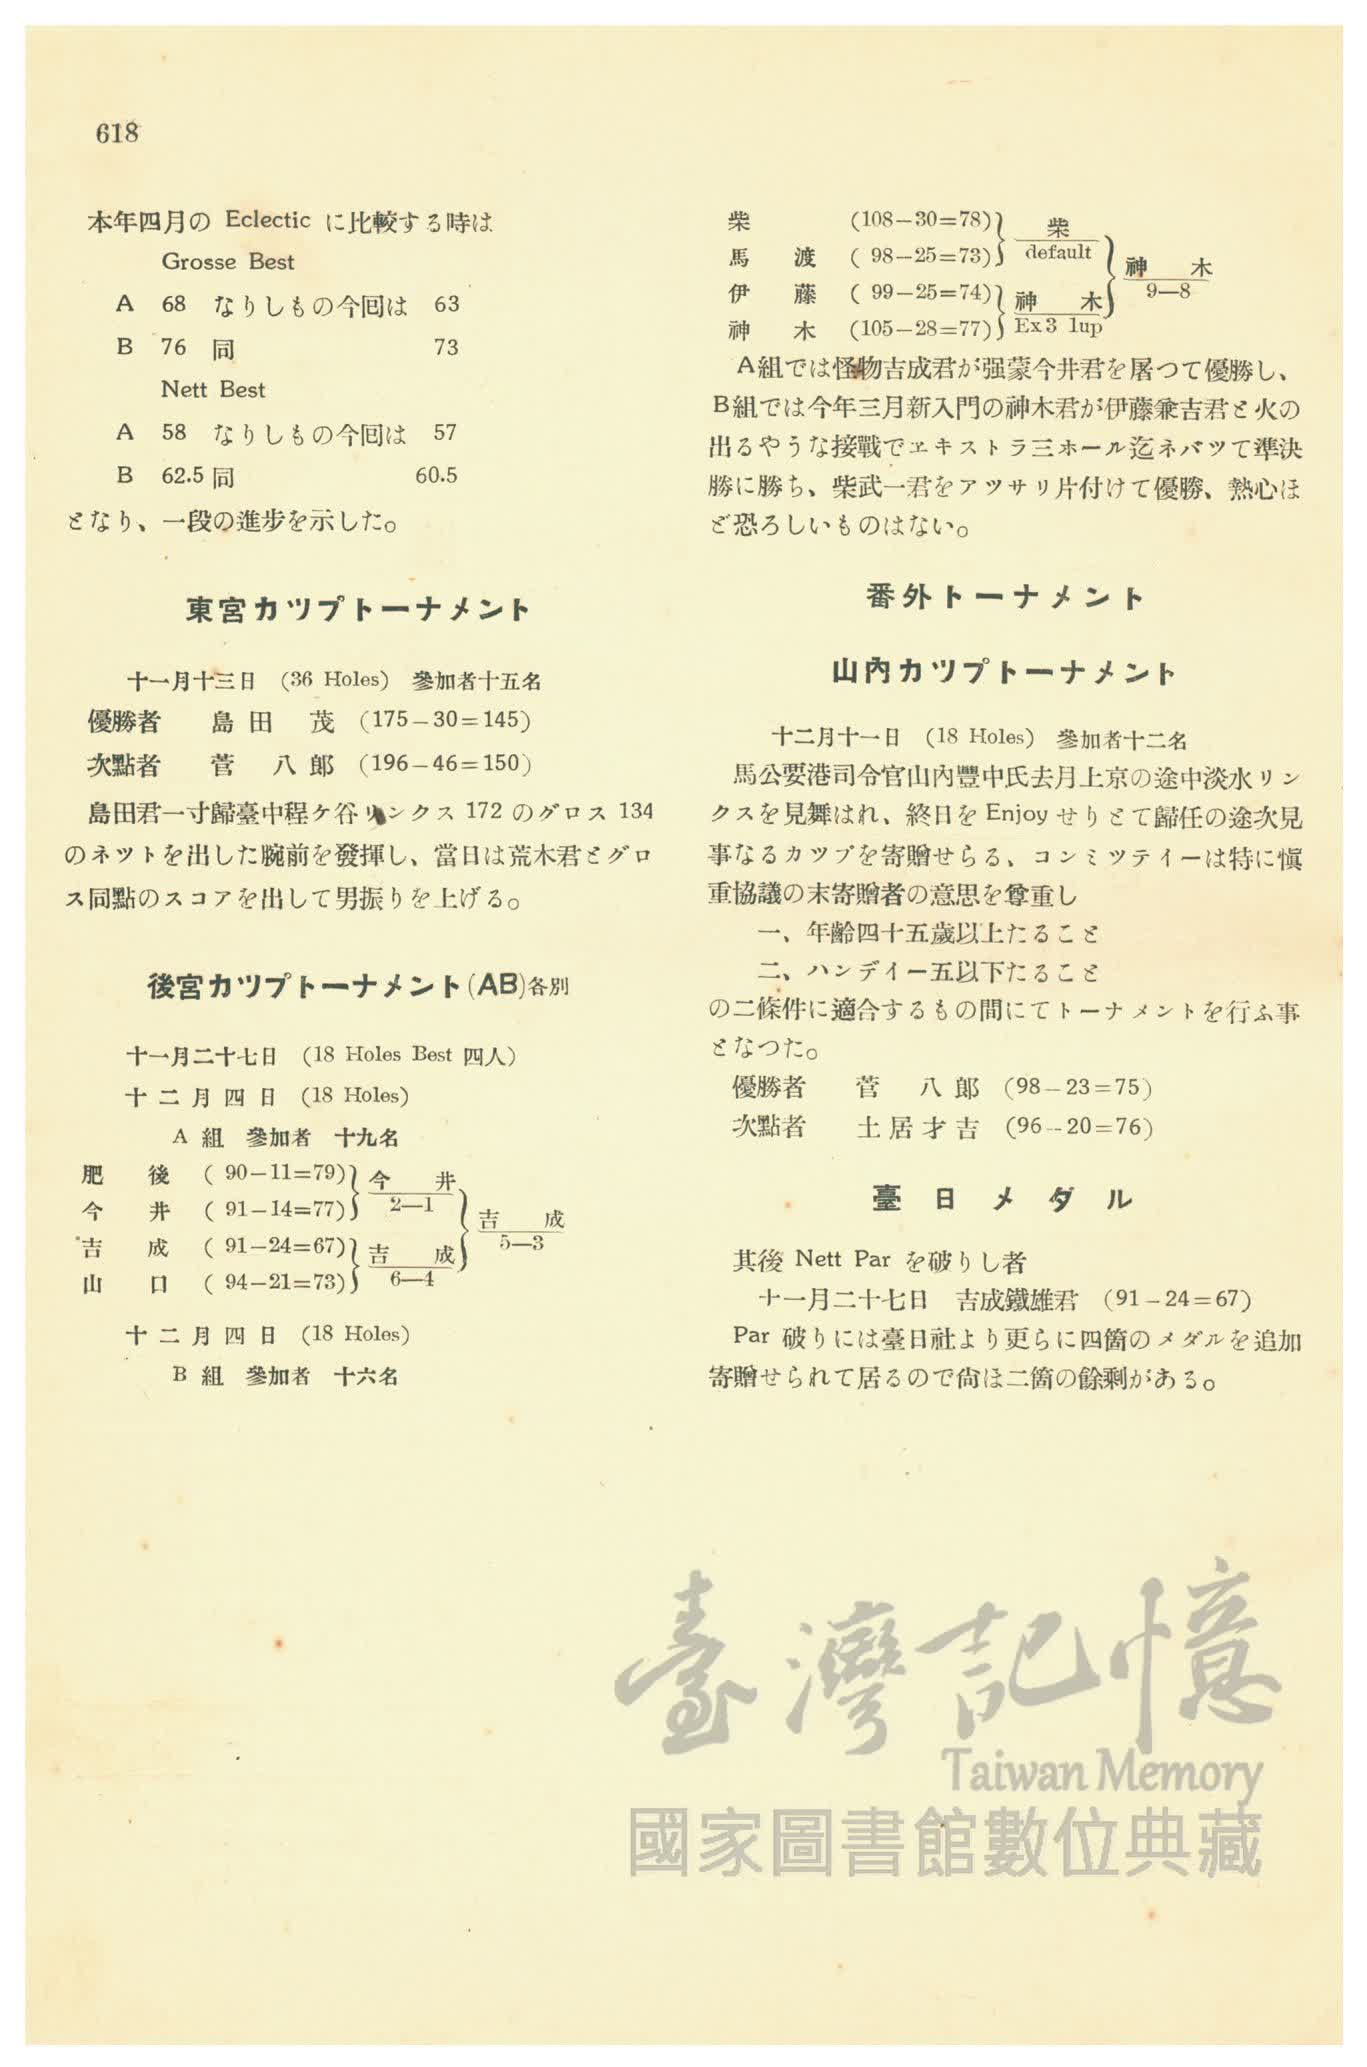 618
本年四月の Eclectic に比較する時は
Grosse Best
A 68 なりしもの今囘は 63
B 76 同 73
Nett Best
A 58 なりしもの今囘は 57
B 62.5 同 60.5
となり、一段の進步を示した。
東宮カツプトーナメント
十一月十三日 (36 Holes) 參加者十五名
優勝者 島田 茂 (175−30=145)
次點者 菅 八郎 (196−46=150)
島田君一寸歸臺中程ケ谷リンクス 172 のグロス 134
のネツトを出した腕前を發揮し、當日は荒木君とグロ
ス同點のスコアを出して男振りを上げる。
後宮カツプトーナメント(AB)各別
十一月二十七日 (18 Holes Best 四人)
十二月四日 (18 Holes)
A 組 參加者 十九名
肥 後 ( 90−11=79)
今 井 ( 91−14=77)
今 井
2—1
吉 成 ( 91−24=67)
山 口 ( 94−21=73)
吉 成
6—4
吉 成
5—3
十二月四日 (18 Holes)
B 組 參加者 十六名
柴 (108−30=78)
馬 渡 ( 98−25=73)
柴
default
伊 藤 ( 99−25=74)
神 木 (105−28=77)
神 木
Ex 3 1up
神 木
9—8
A組では怪物吉成君が强蒙今井君を屠つて優勝し、
B組では今年三月新入門の神木君が伊藤兼吉君と火の
出るやうな接戰でヱキストラ三ホール迄ネバツて準決
勝に勝ち、柴武一君をアツサリ片付けて優勝、熱心ほ
ど恐ろしいものはない。
番外トーナメント
山內カツプトーナメント
十二月十一日 (18 Holes) 參加者十二名
馬公要港司令官山內豐中氏去月上京の途中淡水リン
クスを見舞はれ、終日を Enjoy せりとて歸任の途次見
事なるカツプを寄贈せらる、コンミツテイーは特に愼
重協議の末寄贈者の意思を尊重し
一、年齡四十五歲以上たること
二、ハンデイー五以下たること
の二條件に適合するもの間にてトーナメントを行ふ事
となつた。
優勝者 菅 八郎 (98−23=75)
次點者 土居才吉 (96−20=76)
臺日メダル
其後 Nett Par を破りし者
十一月二十七日 吉成鐵雄君 (91−24=67)
Par 破りには臺日社より更らに四箇のメダルを追加
寄贈せられて居るので尙ほ二箇の餘剩がある。
臺灣記憶
Taiwan Memory
國家圖書館數位典藏